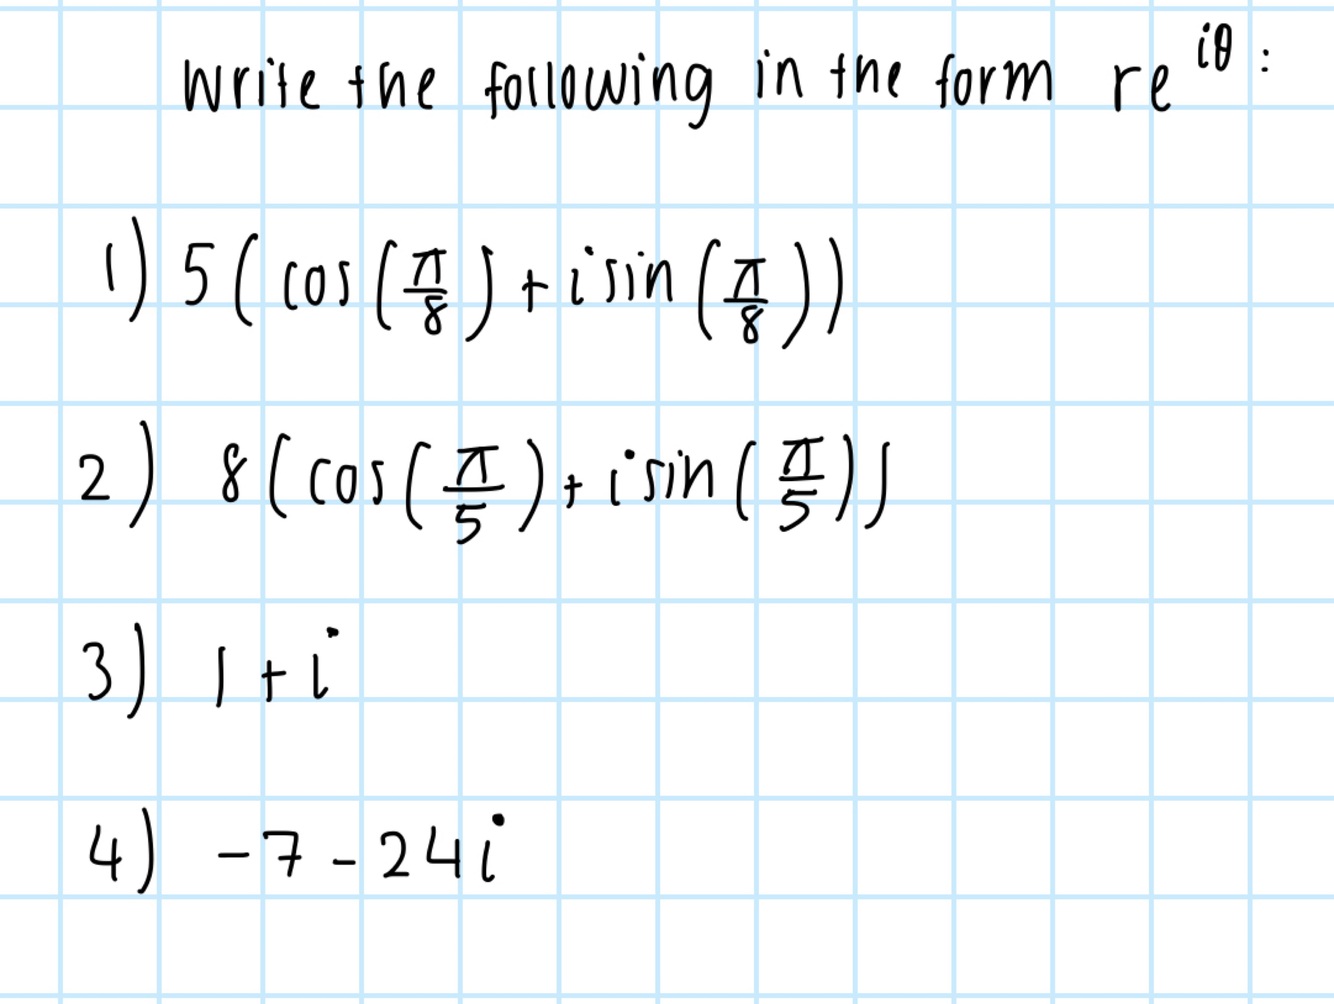 Write the following in the form re^{iθ}:
1) 5(cos(π/8)+isin(π/8))
2) 8(cos(π/5)+isin(π/5))
3) 1+i
4) -7-24i